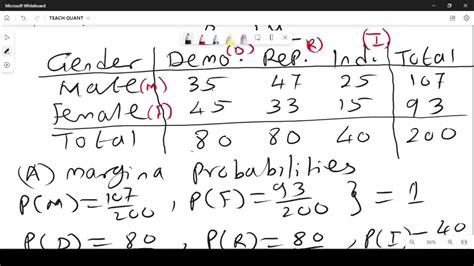 Microsoft Whiteboard
TEACH QUANT
Gender Demo.(D) Rep.(R) Ind.(I) Total
Male(M) 35 47 25 107
Female(F) 45 33 15 93
Total 80 80 40 200
(A) margina Probabilities
P(M)=107/200, P(F)=93/200 } = 1
P(D)=80, P(R)=80, P(I)=40